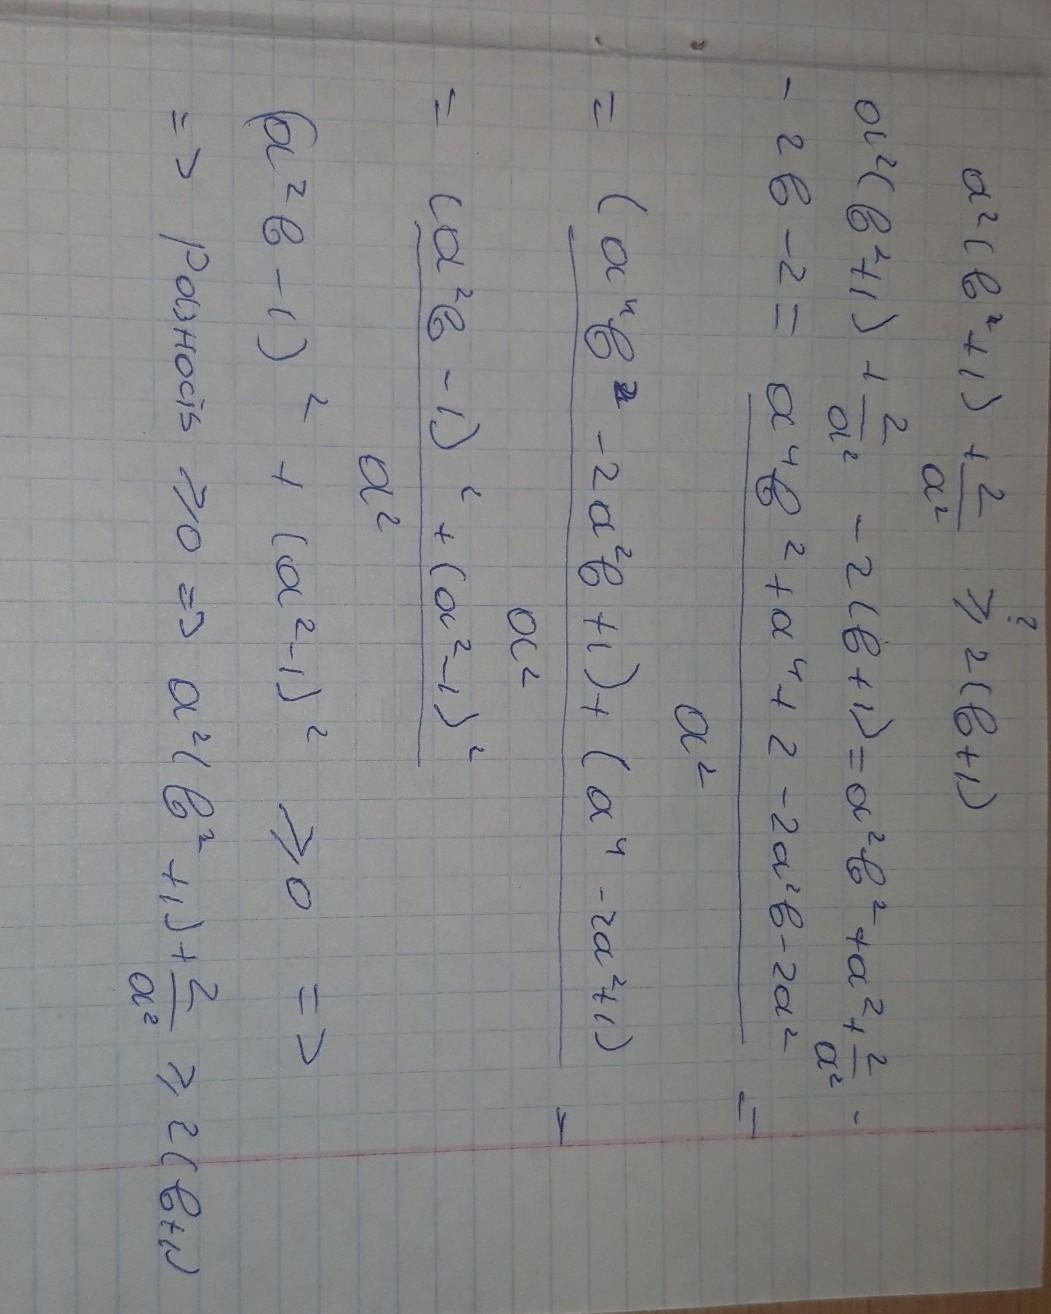 a²(b²+1) + 2/a² ≥? 2(b+1)
a²(b²+1) + 2/a² - 2(b+1) = a²b² + a² + 2/a² -
- 2b - 2 = (a⁴b² + a⁴ + 2 - 2a²b - 2a²)/a² =
= ((a⁴b² - 2a²b + 1) + (a⁴ - 2a² + 1))/a² =
= ((a²b - 1)² + (a² - 1)²)/a²
(a²b - 1)² + (a² - 1)² ≥ 0 =>
=> Разность ≥ 0 => a²(b² + 1) + 2/a² ≥ 2(b+1)